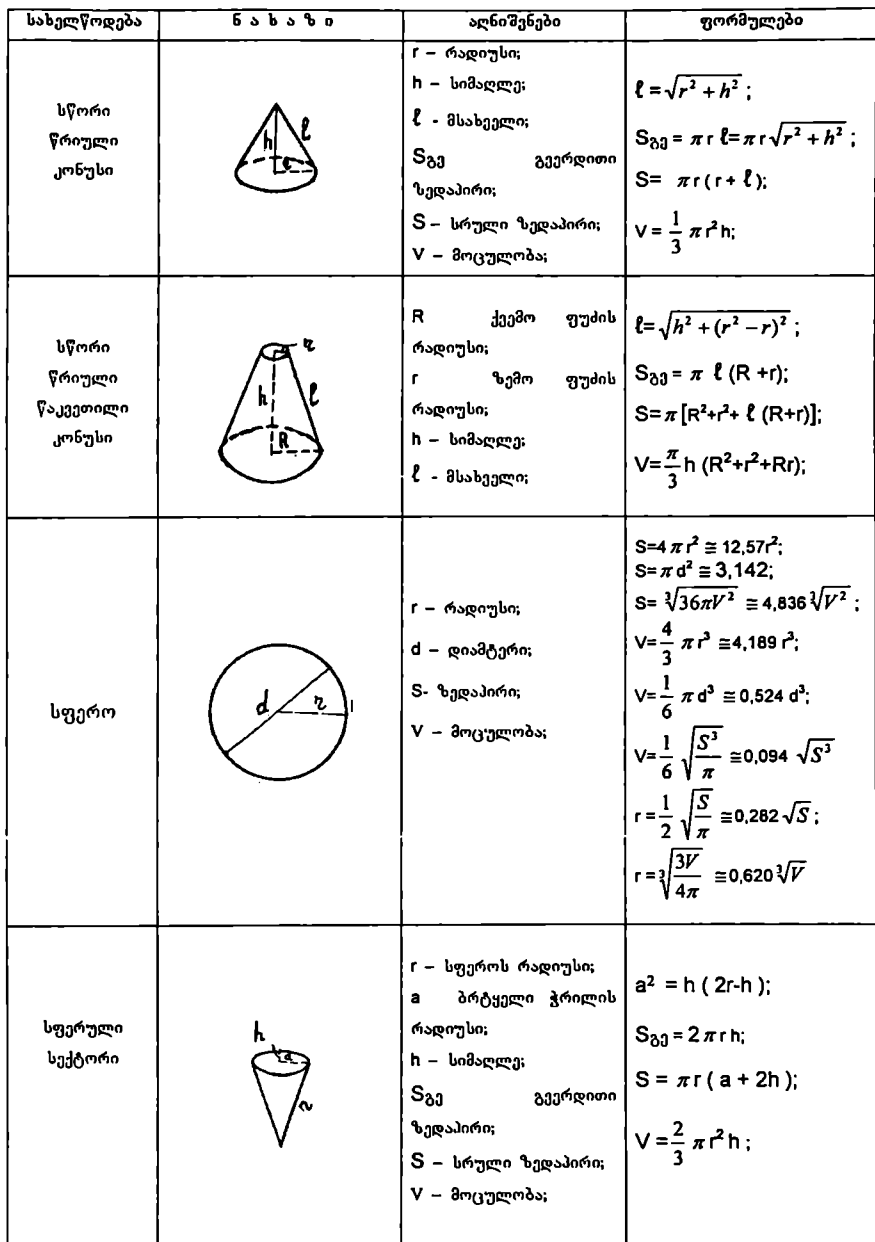 სახელწოდება
ნ ა ხ ა ზ ი
აღნიშვნები
ფორმულები
სწორი
წრიული
კონუსი
h
ℓ
r
r – რადიუსი;
h – სიმაღლე;
ℓ - მსახველი;
Sგვ გვერდითი
ზედაპირი;
S – სრული ზედაპირი;
V – მოცულობა;
ℓ = √(r² + h²) ;
Sგვ = π r ℓ = π r √(r² + h²) ;
S= π r ( r + ℓ );
V = 1/3 π r² h;
სწორი
წრიული
წაკვეთილი
კონუსი
r
h
ℓ
R
R ქვემო ფუძის
რადიუსი;
r ზემო ფუძის
რადიუსი;
h – სიმაღლე;
ℓ - მსახველი;
ℓ= √(h² + (r² − r)²) ;
Sგვ = π ℓ (R +r);
S= π [R²+r²+ ℓ (R+r)];
V= π/3 h (R²+r²+Rr);
სფერო
d
r
r – რადიუსი;
d – დიამტერი;
S- ზედაპირი;
V – მოცულობა;
S=4 π r² ≅ 12,57r²;
S= π d² ≅ 3,142;
S= ∛(36πV²) ≅ 4,836 ∛(V²) ;
V= 4/3 π r³ ≅4,189 r³;
V= 1/6 π d³ ≅ 0,524 d³;
V= 1/6 √(S³/π) ≅0,094 √(S³)
r = 1/2 √(S/π) ≅0,282 √S ;
r = ∛(3V/4π) ≅0,620 ∛V
სფერული
სექტორი
h
a
r
r – სფეროს რადიუსი;
a ბრტყელი ჭრილის
რადიუსი;
h – სიმაღლე;
Sგვ გვერდითი
ზედაპირი;
S – სრული ზედაპირი;
V – მოცულობა;
a² = h ( 2r-h );
Sგვ = 2 π r h;
S = π r ( a + 2h );
V = 2/3 π r² h ;